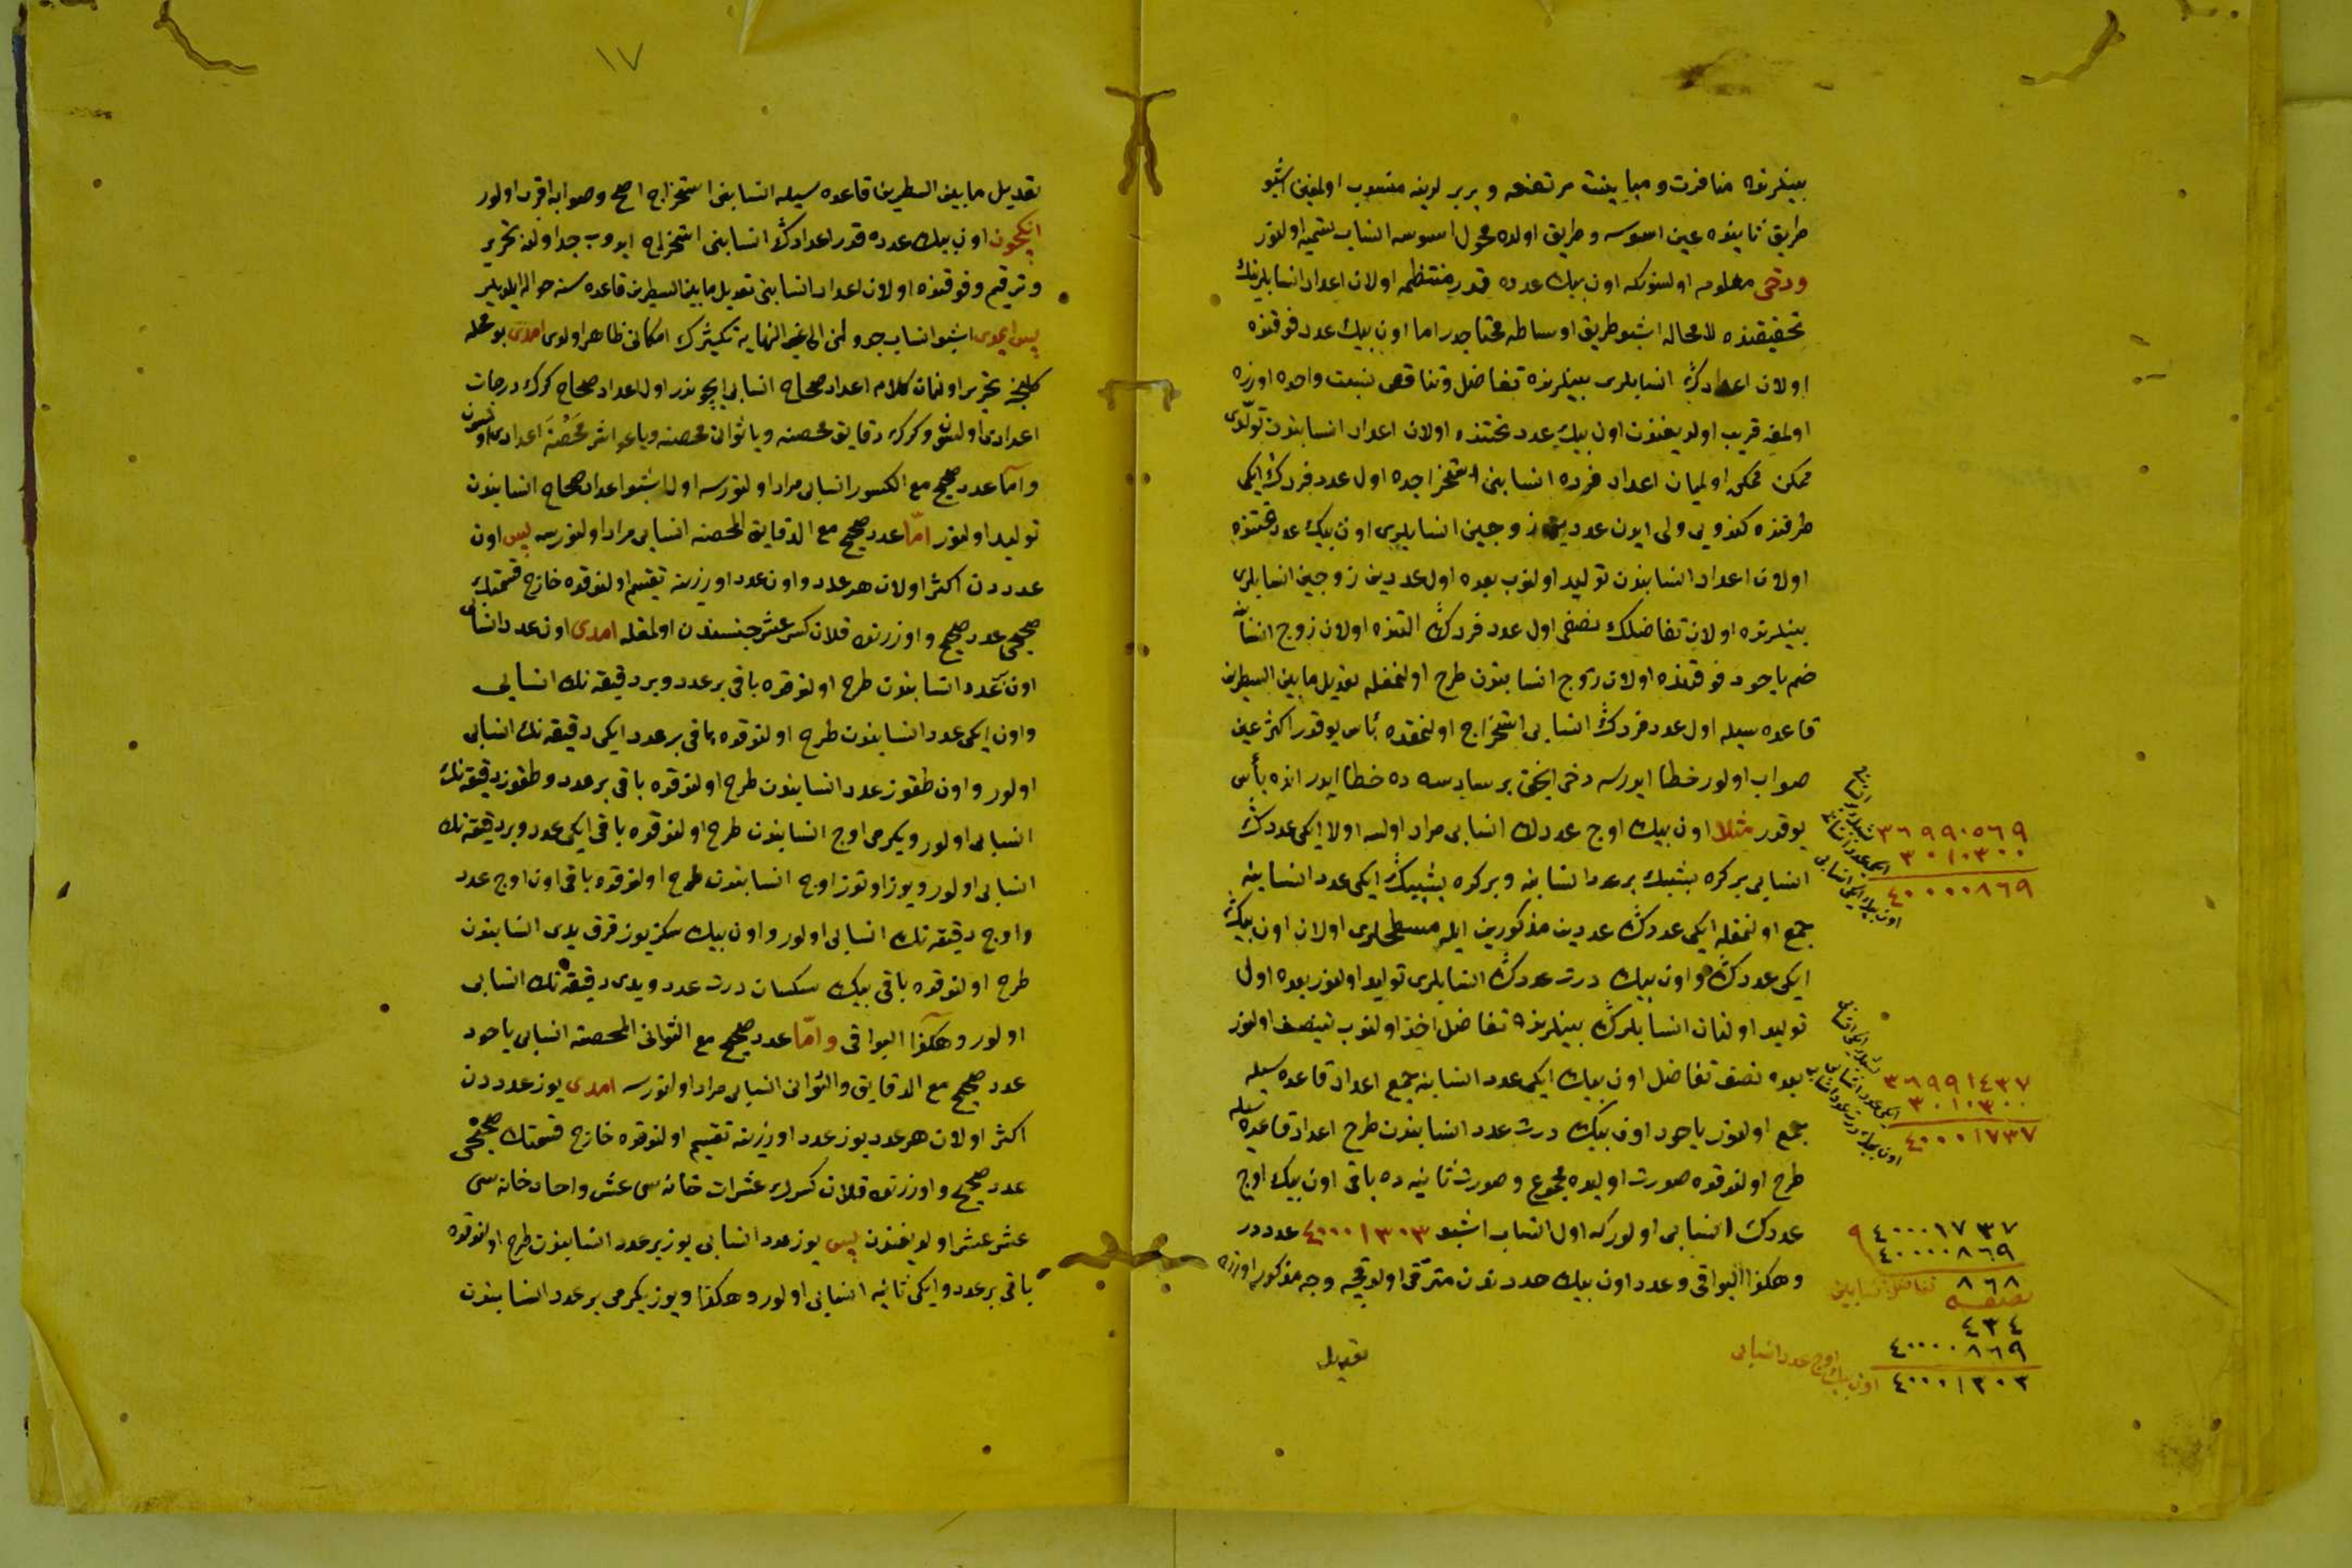 بينلرنده منافرت و مباينت مرتفعه و بربرلرينه منسوب اولمغين اشبو
طريق ثانيده عين اسوسه و طريق اولده محول اسوسه انساب تسميه اولنور
ودخى معلوم اولسونكه اون بيك عدده قدر منتظم اولان اعداد انسابلرينك
تحقيقنده لا محاله اشبو طريق اوساطه محتاجدر اما اون بيك عدد فوقنده
اولان اعدادڭ انسابلرى بينلرنده تفاضل و تناقص نسبت واحده اوزره
اولمغه قريب اولديغندن اون بيك عدد تحتنده اولان اعداد انسابندن تولدى
ممكن ممكن اولميان اعداد فرده انسابنى استخراجده اول عدد فردڭ ايكى
طرفنده كندويى ولى ايدن عددين زوجين انسابلرى اون بيك عدد تحتنده
اولان اعداد انسابندن توليد اولنوب بعده اول عددين زوجين انسابلرى
بينلرنده اولان تفاضلك نصفى اول عدد فردڭ التنده اولان زوج انسابنه
ضم ياخود فوقنده اولان زوج انسابندن طرح اولنمغله تعديل ما بين السطرين
قاعده سيله اول عدد فردڭ انسابى استخراج اولنمقده بأس يوقدر اكثر عين
صواب اولور خطا ايدرسه دخى انجق بر سادسه ده خطا ايدر انده بأس
يوقدر مثلا اون بيك اوچ عددك انسابى مراد اولسه اولا ايكى عددڭ
انسابى بر كره بشبيك بر عدد انسابنه و بر كره بشبيڭ ايكى عدد انسابنه
جمع اولنمغله ايكى عددڭ عددين مذكورين ايله مسطحلرى اولان اون بيڭ
ايكى عددڭ و اون بيك درت عددڭ انسابلرى توليد اولنور بعده اول
توليد اولنان انسابلرڭ بينلرنده تفاضل اخذ اولنوب تنصيف اولنور
بعده نصف تفاضل اون بيك ايكى عدد انسابنه جمع اعداد قاعده سيله
جمع اولنور ياخود اون بيڭ درت عدد انسابندن طرح اعداد قاعده سيله
طرح اولندقده صورت اوليده مجموع و صورت ثانيه ده باقى اون بيك اوچ
عددك انسابى اولوركه اول انساب اشبو ٤٠٠٠١٣٠٣ عدددر
وهكذا البواقى و عدد اون بيك عدددن مترقى اولدقجه وجه مذكور اوزره
تعديل
٣٦٩٩٠٥٦٩
٣٠١٠٣٠٠
٤٠٠٠٠٨٦٩
٣٦٩٩١٤٣٧
٣٠١٠٣٠٠
٤٠٠٠١٧٣٧
٤٠٠٠١٧٣٧
٤٠٠٠٠٨٦٩
٨٦٨ تفاضل انسابين
نصفه
٤٣٤
٤٠٠٠٠٨٦٩
٤٠٠٠١٣٠٣ اون بيك اوچ عدد انسابى
١٧
تعديل ما بين السطرين قاعده سيله انسابنى استخراج اصح و صوابه اقرب اولور
انكچون اون بيك عدده قدر اعدادڭ انسابنى استخراج ايدوب جداولده تحرير
و ترقيم و فوقنده اولان اعداد انسابنى تعديل ما بين السطرين قاعده سنه حواله ايلديلر
پس ايمدى اشبو انساب جدولنى الى غير النهايه تكثيرك امكانى ظاهر اولدى امدى بو محله
كلنجه تحرير اولنان كلام اعداد صحاح انسابى ايچوندر اول اعداد صحاح كرك درجات
اعدادى اولسون و كرك دقايق محصنه ويا ثوانئ محصنه ويا عواشر محصنه اعدادى اولسون
و اما عدد صحيح مع الكسور انسابى مراد اولنورسه اول اشبو اعداد صحاح انسابندن
توليد اولنور اما عدد صحيح مع الدقايق المحصنه انسابى مراد اولنورسه پس اون
عدددن اكثر اولان هر عدد و اون عدد اوزرينه تقسيم اولندقده خارج قسمتك
صحيحى عدد صحيح و اوزرنده قلان كسر عشر جنسندن اولمغله امدى اون عدد انسابى
اون بر عدد انسابندن طرح اولندقده باقى بر عدد و بر دقيقه نك انسابى
و اون ايكى عدد انسابندن طرح اولندقده باقى بر عدد ايكى دقيقه نك انسابى
اولور و اون طقوز عدد انسابندن طرح اولندقده باقى بر عدد و طقوز دقيقه نك
انسابى اولور و يكرمى اوچ انسابندن طرح اولندقده باقى ايكى عدد و بر دقيقه نك
انسابى اولور و يوز اوتوز اوچ انسابندن طرح اولندقده باقى اون اوچ عدد
و اوچ دقيقه نك انسابى اولور و اون بيك سكز يوز قرق يدى انسابندن
طرح اولندقده باقى بيك سكسان درت عدد و يدى دقيقه نك انسابى
اولور و هكذا البواقى و اما عدد صحيح مع الثوانى المحصنه انسابى ياخود
عدد صحيح مع الدقايق و الثوانى انسابى مراد اولنورسه امدى يوز عدددن
اكثر اولان هر عدد يوز عدد اوزرينه تقسيم اولندقده خارج قسمتك صحيحى
عدد صحيح و اوزرنده قلان كسرك عشرات خانه سى عشر و احاد خانه سى
عشر عشر اولديغندن پس يوز عدد انسابى يوز بر عدد انسابندن طرح اولندقده
باقى بر عدد و ايكى ثانيه انسابى اولور و هكذا و يوز يكرمى بر عدد انسابندن